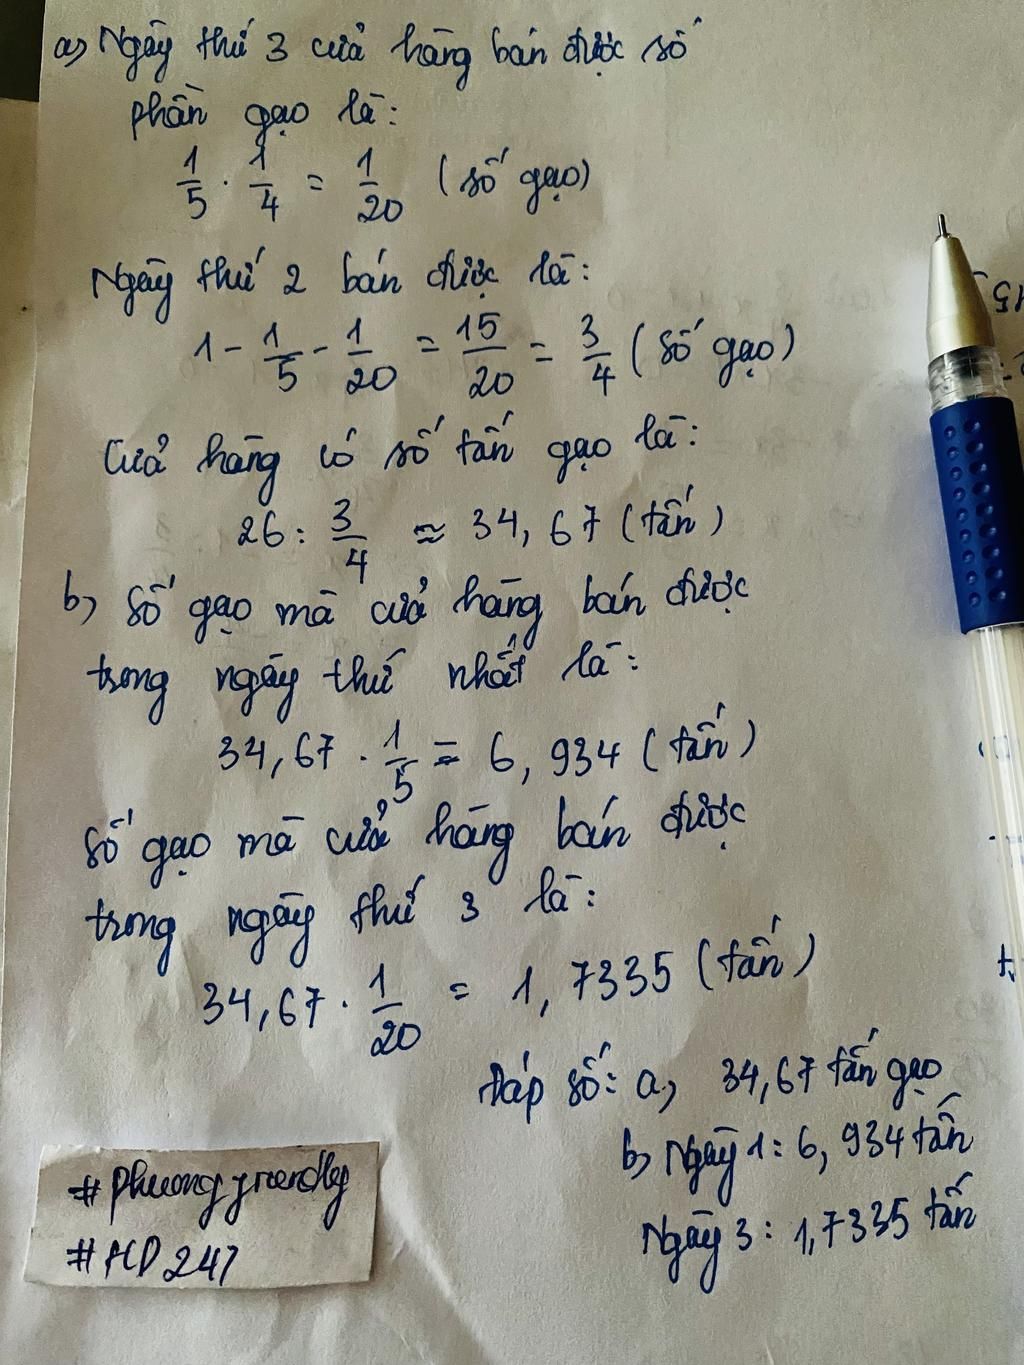 a) Ngày thứ 3 cửa hàng bán được số
phần gạo là:
1/5 . 1/4 = 1/20 (số gạo)
Ngày thứ 2 bán được là:
1 - 1/5 - 1/20 = 15/20 = 3/4 (số gạo)
Cửa hàng có số tấn gạo là:
26 : 3/4 ≈ 34,67 (tấn)
b) Số gạo mà cửa hàng bán được
trong ngày thứ nhất là:
34,67 . 1/5 = 6,934 (tấn)
Số gạo mà cửa hàng bán được
trong ngày thứ 3 là:
34,67 . 1/20 = 1,7335 (tấn)
Đáp số: a, 34,67 tấn gạo
b) Ngày 1: 6,934 tấn
Ngày 3: 1,7335 tấn
#phuongfriendly
#HD247